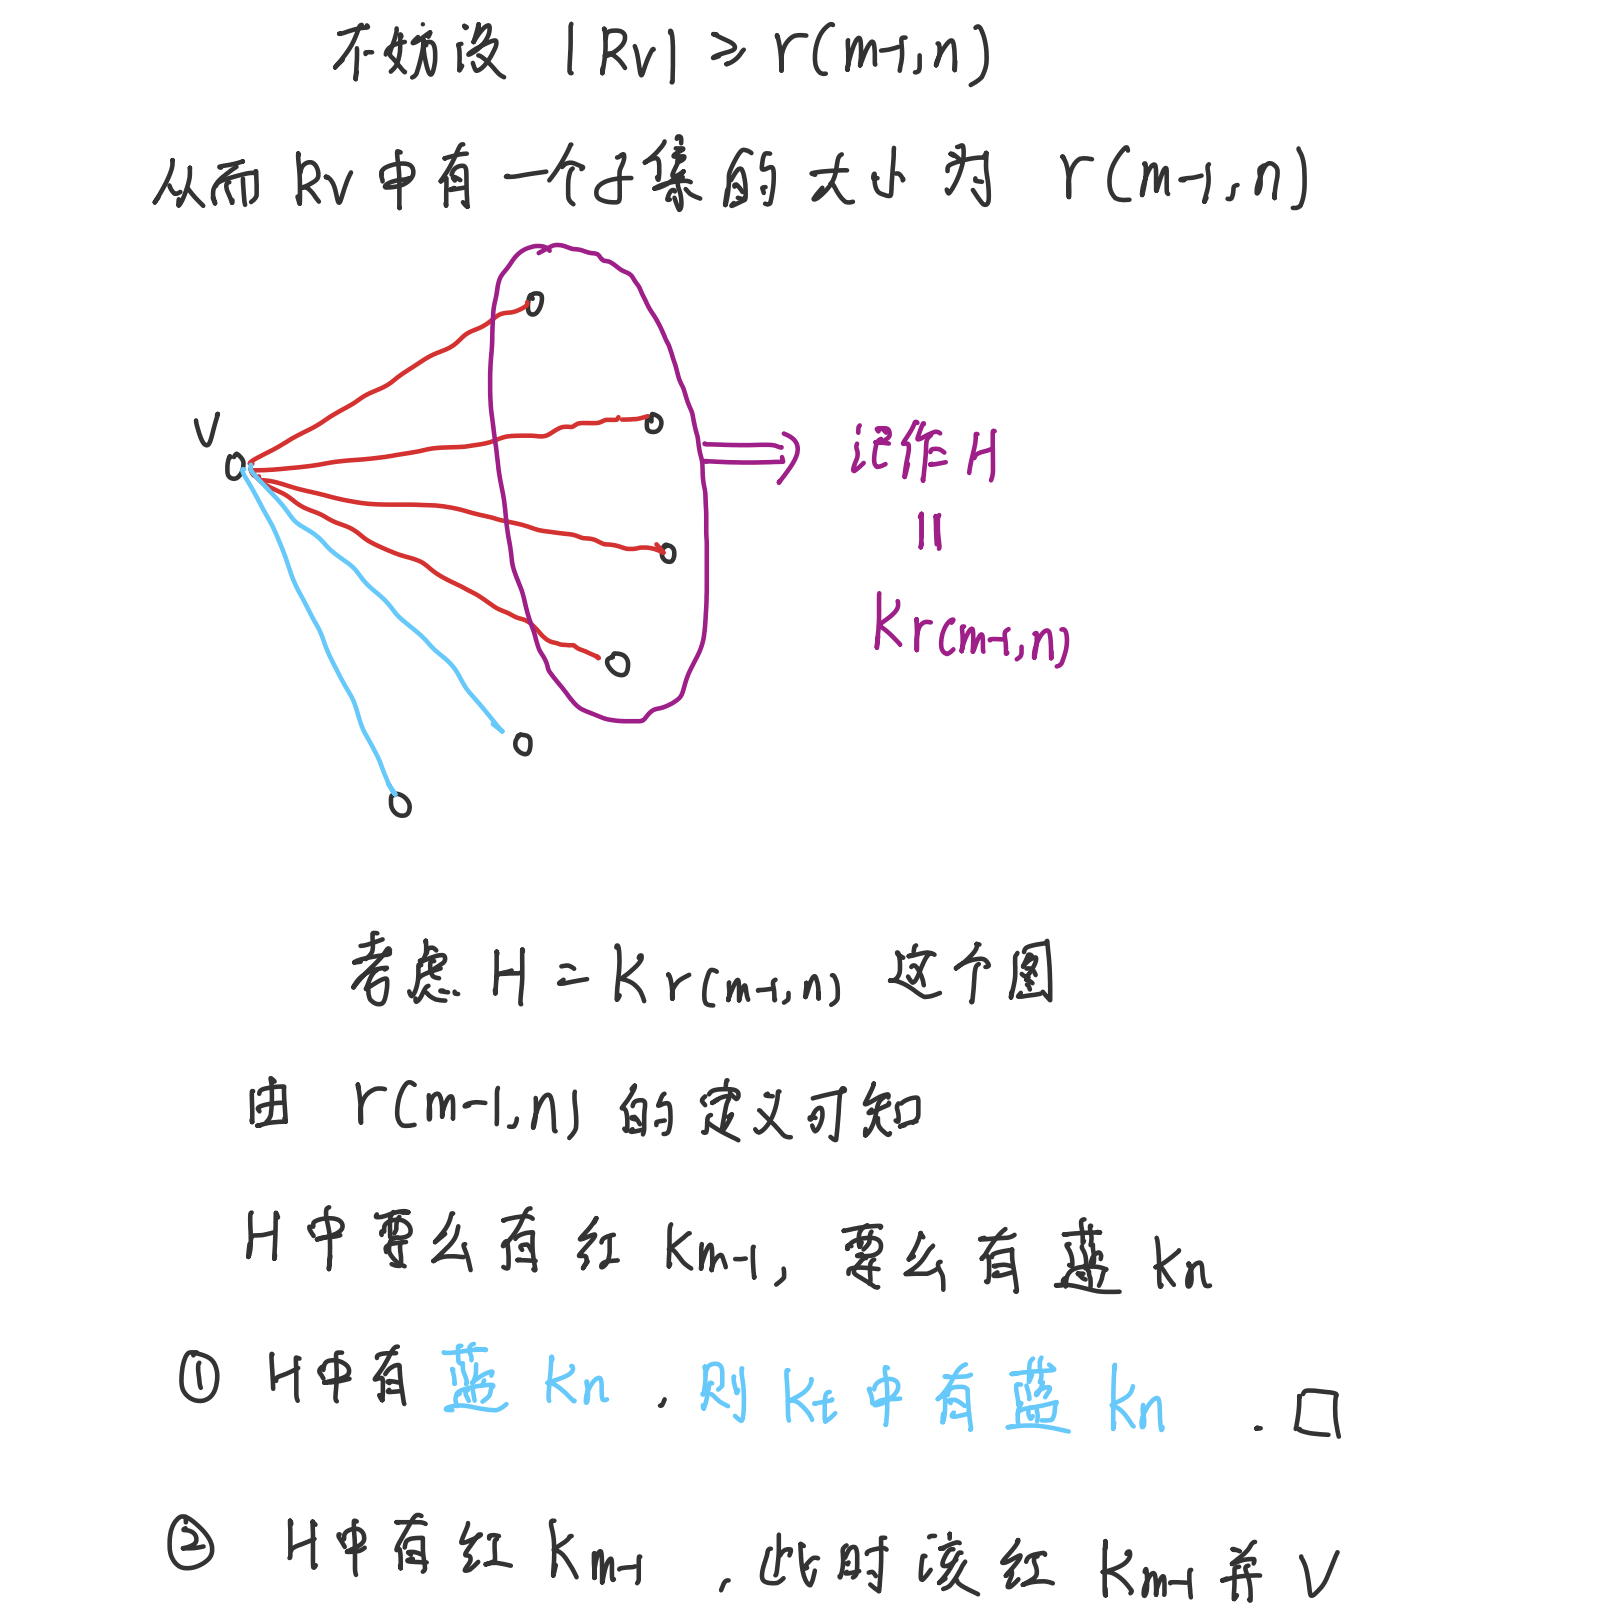 不妨设 |Rv| ≥ r(m-1,n)
从而 Rv 中有一个子集的大小为 r(m-1,n)
V
记作 H
=
Kr(m-1,n)
考虑 H = Kr(m-1,n) 这个图
由 r(m-1,n) 的定义可知
H中要么有红 Km-1, 要么有蓝 Kn
① H中有蓝 Kn , 则 Kt 中有蓝 Kn . □
② H中有红 Km-1 , 此时该红 Km-1 并 V